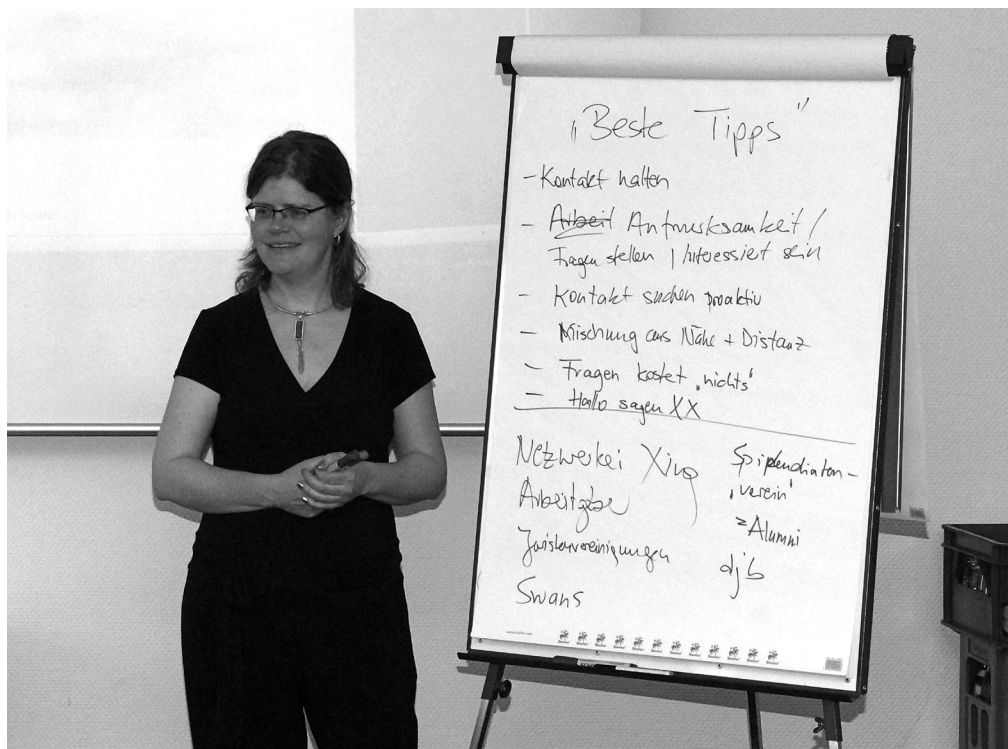 „Beste Tipps"
- Kontakt halten
- Arbeit Aufmerksamkeit /
Fragen stellen / Interessiert sein
- Kontakt suchen proaktiv
- Mischung aus Nähe + Distanz
- Fragen kostet „nichts"
- Hallo sagen XX
Netzwerkei Xing
Arbeitgeber
Juristenvereinigungen
Swans
Stipendiaten-
„verein"
=Alumni
djb